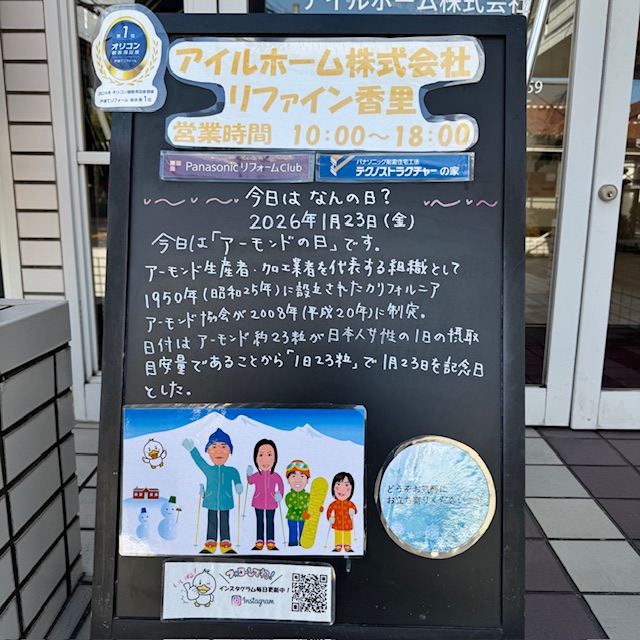 アイルホーム株式会社
第1位
オリコン
顧客満足度
アイルホーム株式会社
リファイン香里
営業時間 10:00〜18:00
Panasonic リフォーム Club
パナソニック耐震住宅工法
テクノストラクチャーの家
今日は なんの日？
2026年1月23日(金)
今日は「アーモンドの日」です。
アーモンド生産者・加工業者を代表する組織として
1950年(昭和25年)に設立されたカリフォルニア
アーモンド協会が2008年(平成20年)に制定。
日付はアーモンド約23粒が日本人女性の1日の摂取
目安量であることから「1日23粒」で1月23日を記念日
とした。
どうぞお気軽に
お立ち寄りくださいませ
いいね!
フォローしてネ!
インスタグラム毎日更新中!
Instagram
59